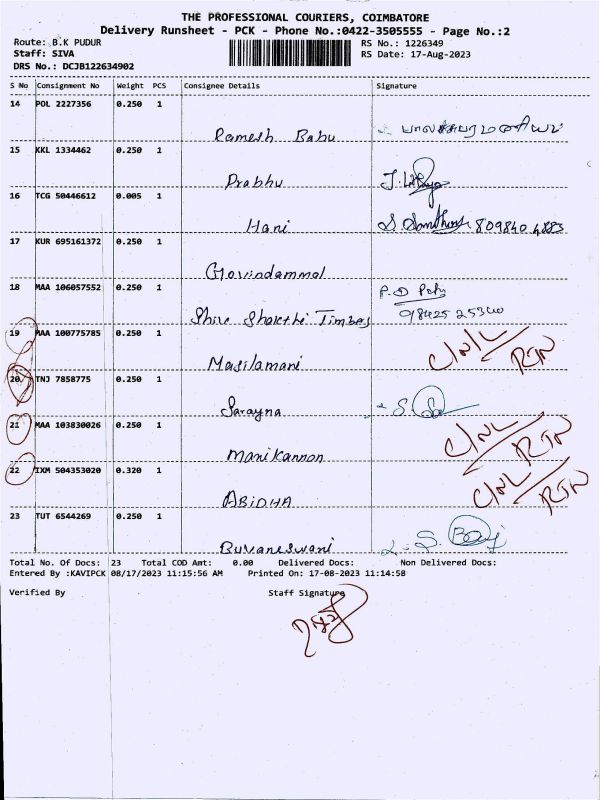 THE PROFESSIONAL COURIERS, COIMBATORE
Delivery Runsheet - PCK - Phone No.:0422-3505555 - Page No.:2
Route: B.K PUDUR
RS No.: 1226349
Staff: SIVA
RS Date: 17-Aug-2023
DRS No.: DCJB122634902
S No Consignment No Weight PCS Consignee Details Signature
14 POL 2227356 0.250 1
Ramesh Babu
15 KKL 1334462 0.250 1
Prabhu
16 TCG 50446612 0.005 1
Hani
17 KUR 695161372 0.250 1
Govindammal
18 MAA 106057552 0.250 1
Shiv Shakthi Timbas
98425 25340
19 MAA 100775785 0.250 1
Masilamani C/NL RTN
20 TNJ 7858775 0.250 1
Sarayna
21 MAA 103830026 0.250 1
Manikannan C/NL RTN
22 IXM 504353020 0.320 1
ABIDHA C/NL RTN
23 TUT 6544269 0.250 1
Buvaneswani
Total No. Of Docs: 23 Total COD Amt: 0.00 Delivered Docs: Non Delivered Docs:
Entered By :KAVIPCK 08/17/2023 11:15:56 AM Printed On: 17-08-2023 11:14:58
Verified By Staff Signature